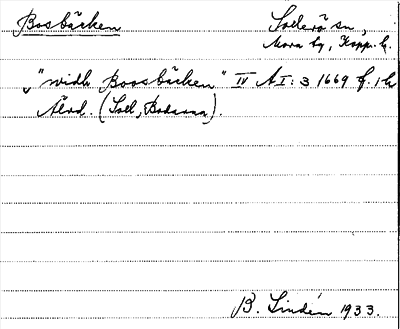 Bosbäcken Sollerö sn,
Mora tg, Kopp. l.
"widh Boosbäcken" IV A I: 3 1669 f. 1
Älvd. (Soll, Bodarna).
B. Lindén 1933.